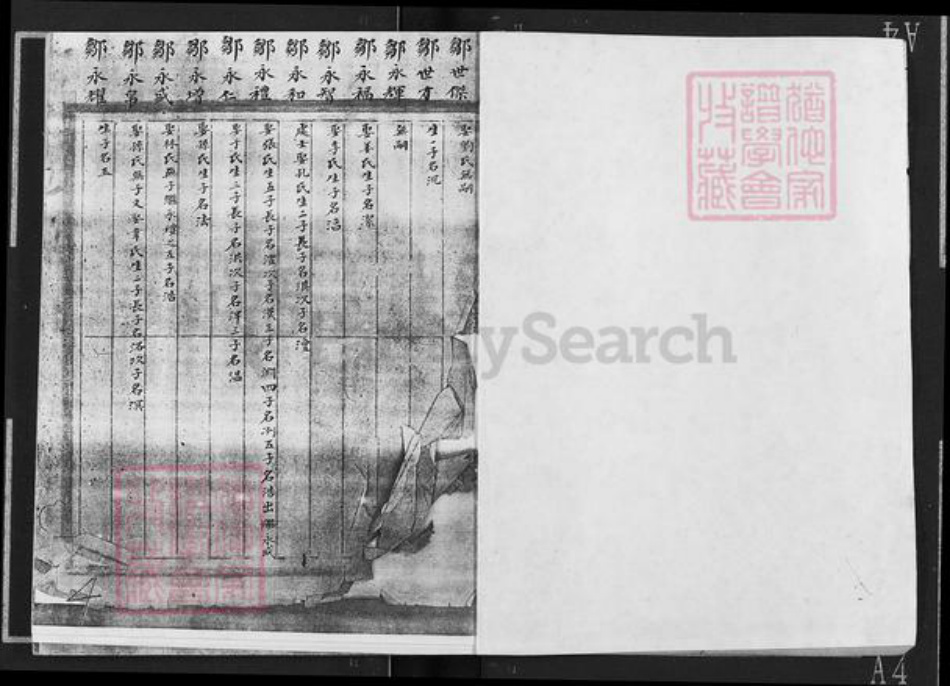 鄒世傑 娶劉氏無嗣
鄒世有 生一子名沉
鄒永輝 無嗣
鄒永福 娶姜氏生子名潔
鄒永智 娶李氏生子名浩
鄒永和 處士娶孔氏生二子長子名淇次子名
鄒永禮 娶張氏生五子長子名 次子名漢三子名淵四子名 五子名浩出繼永盛
鄒永仁 娶于氏生三子長子名洪次子名澤三子名温
鄒永增 娶孫氏生子名法
鄒永盛 娶林氏無子繼永禮之五子名浩
鄒永 娶孫氏無子又娶韋氏生二子長子名 次子名淇
鄒永耀 生子名玉
猶他家
譜學會
收藏
MySearch
A4
A4